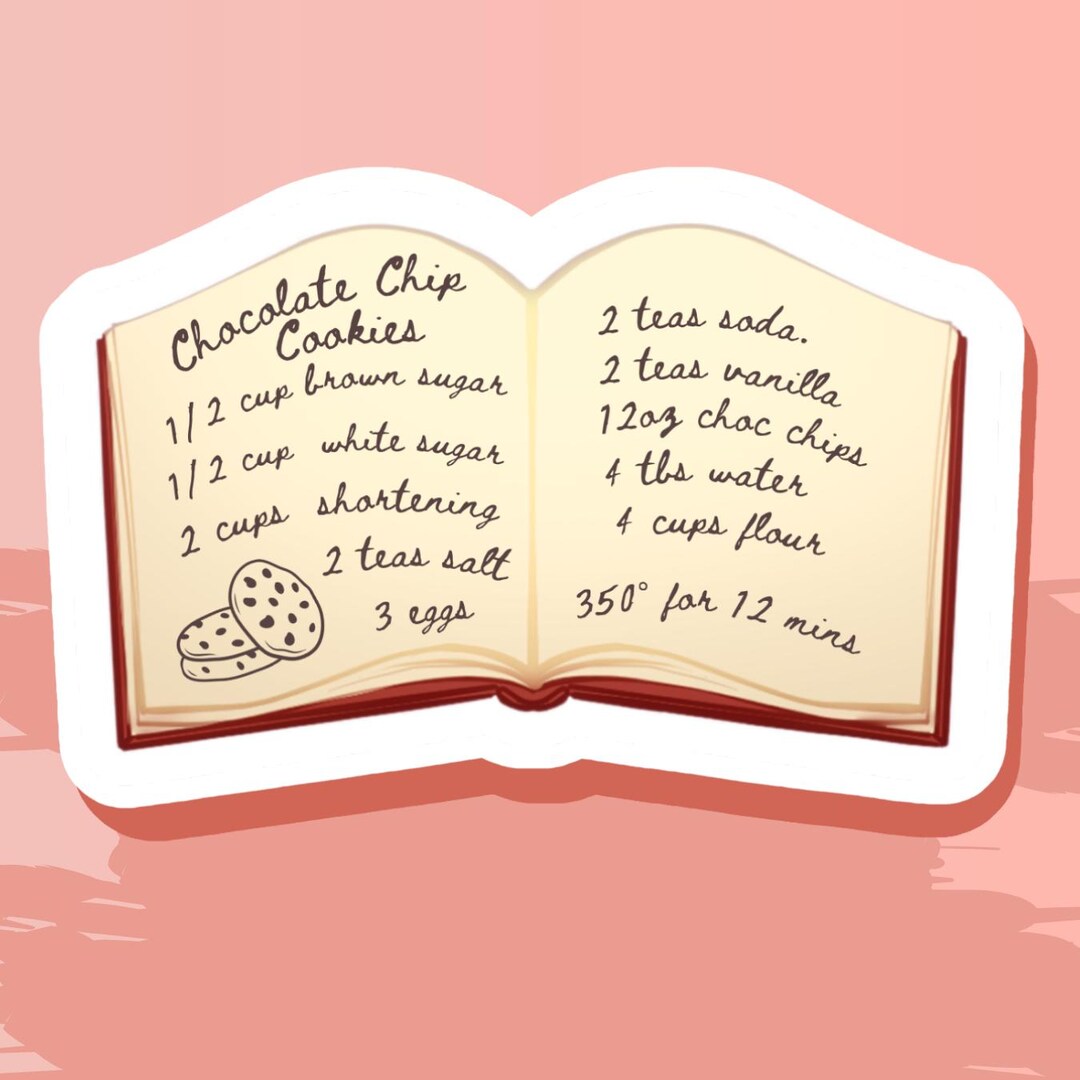 Chocolate Chip
Cookies
1/2 cup brown sugar
1/2 cup white sugar
2 cups shortening
2 teas salt
3 eggs
2 teas soda.
2 teas vanilla
12oz choc chips
4 tbs water
4 cups flour
350° for 12 mins